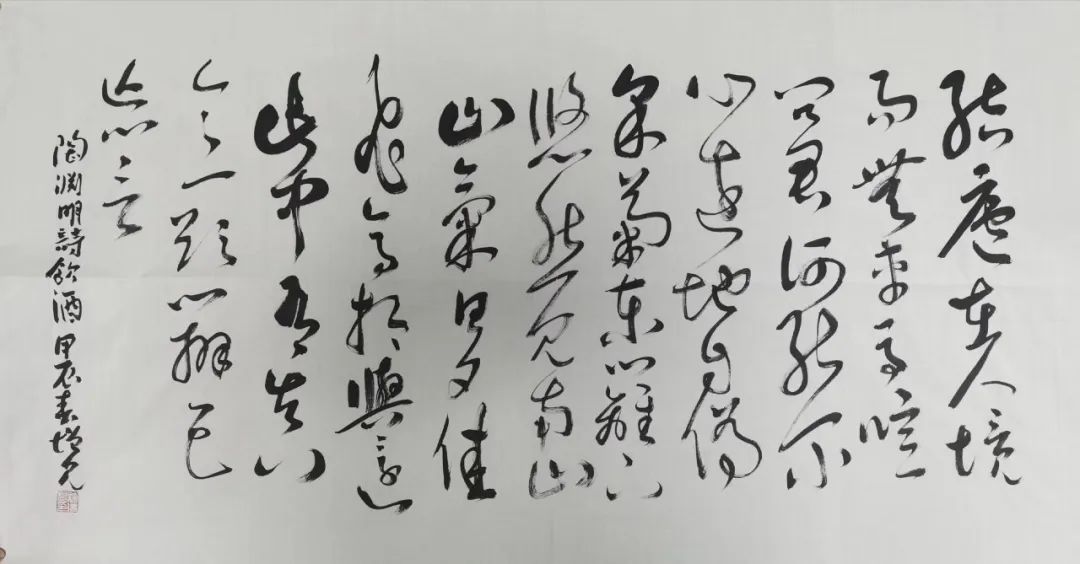 結廬在人境
而無車馬喧
問君何能尔
心遠地自偏
采菊東籬下
悠然見南山
山氣日夕佳
飛鳥相與還
此中有真
意欲辨已
忘言
陶渊明詩飲酒甲辰春增